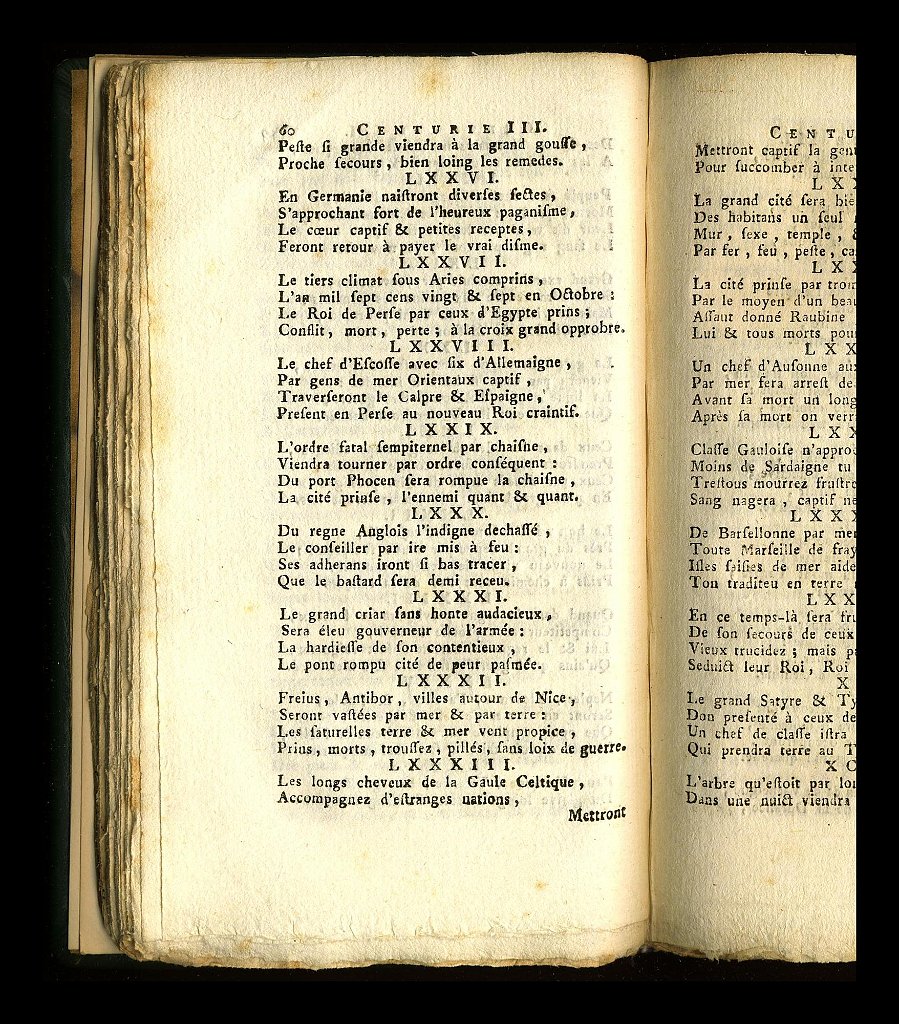 60 CENTURIE III.
Peſte ſi grande viendra à la grand gouſſe,
Proche ſecours, bien loing les remedes.
LXXVI.
En Germanie naiſtront diverſes ſectes,
S'approchant fort de l'heureux paganiſme,
Le cœur captif & petites receptes,
Feront retour à payer le vrai diſme.
LXXVII.
Le tiers climat ſous Aries comprins,
L'an mil ſept cens vingt & ſept en Octobre :
Le Roi de Perſe par ceux d'Egypte prins ;
Conflit, mort, perte ; à la croix grand opprobre.
LXXVIII.
Le chef d'Eſcoſſe avec ſix d'Allemaigne,
Par gens de mer Orientaux captif,
Traverſeront le Calpre & Eſpaigne,
Preſent en Perſe au nouveau Roi craintif.
LXXIX.
L'ordre fatal ſempiternel par chaiſne,
Viendra tourner par ordre conſéquent :
Du port Phocen ſera rompue la chaiſne,
La cité prinſe, l'ennemi quant & quant.
LXXX.
Du regne Anglois l'indigne dechaſſé,
Le conſeiller par ire mis à feu :
Ses adherans iront ſi bas tracer,
Que le baſtard ſera demi receu.
LXXXI.
Le grand criar ſans honte audacieux,
Sera éleu gouverneur de l'armée :
La hardieſſe de ſon contentieux,
Le pont rompu cité de peur paſmée.
LXXXII.
Freius, Antibor, villes autour de Nice,
Seront vaſtées par mer & par terre :
Les ſaturelles terre & mer vent propice,
Prins, morts, trouſſez, pillés, ſans loix de guerre.
LXXXIII.
Les longs cheveux de la Gaule Celtique,
Accompagnez d'eſtranges nations,
Mettront
CENTU
Mettront captif la gent
Pour ſuccomber à inte
LXX
La grand cité ſera bie
Des habitans un ſeul
Mur, ſexe, temple, &
Par fer, feu, peſte, ca
LXX
La cité prinſe par trom
Par le moyen d'un beau
Aſſaut donné Raubine
Lui & tous morts pour
LXX
Un chef d'Auſonne aux
Par mer ſera arreſt de
Avant ſa mort un long
Après ſa mort on verr
LXX
Claſſe Gauloiſe n'approc
Moins de Sardaigne tu
Treſtous mourrez fruſtre
Sang nagera, captif ne
LXXX
De Barſellonne par mer
Toute Marſeille de fray
Iſles ſaiſies de mer aide
Ton traditeu en terre
LXX
En ce temps-là ſera fru
De ſon ſecours de ceux
Vieux trucidez ; mais p
Seduict leur Roi, Roi
X
Le grand Satyre & Ty
Don preſenté à ceux de
Un chef de claſſe iſtra
Qui prendra terre au T
XC
L'arbre qu'eſtoit par lon
Dans une nuict viendra